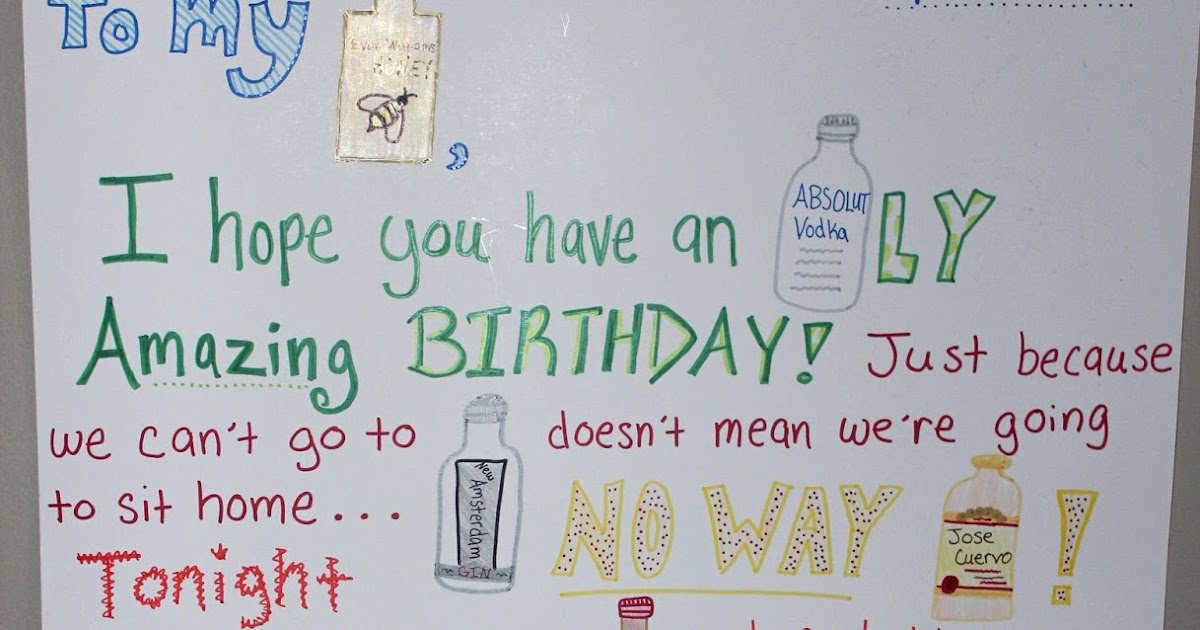 To My Evan Williams HONEY,
I hope you have an ABSOLUT Vodka LY
Amazing BIRTHDAY! Just because
we can't go to New Amsterdam GIN doesn't mean we're going
to sit home... NO WAY Jose Cuervo !
Tonight